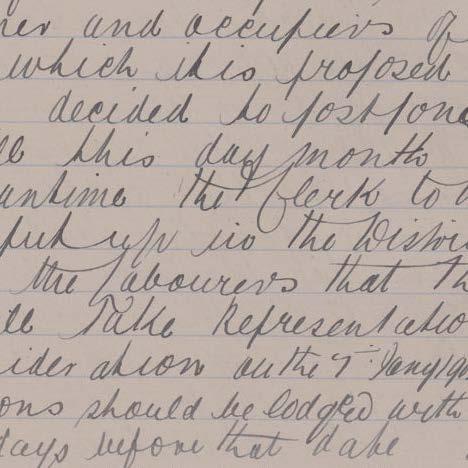 ner and occupiers of
which it is proposed
decided to postpone
ll this day month
antime the Clerk to
put up in the Distri
the Labourers that th
ill Take Representatio
ideration on the 7th Jany 190
ons should be lodged with
days before that date